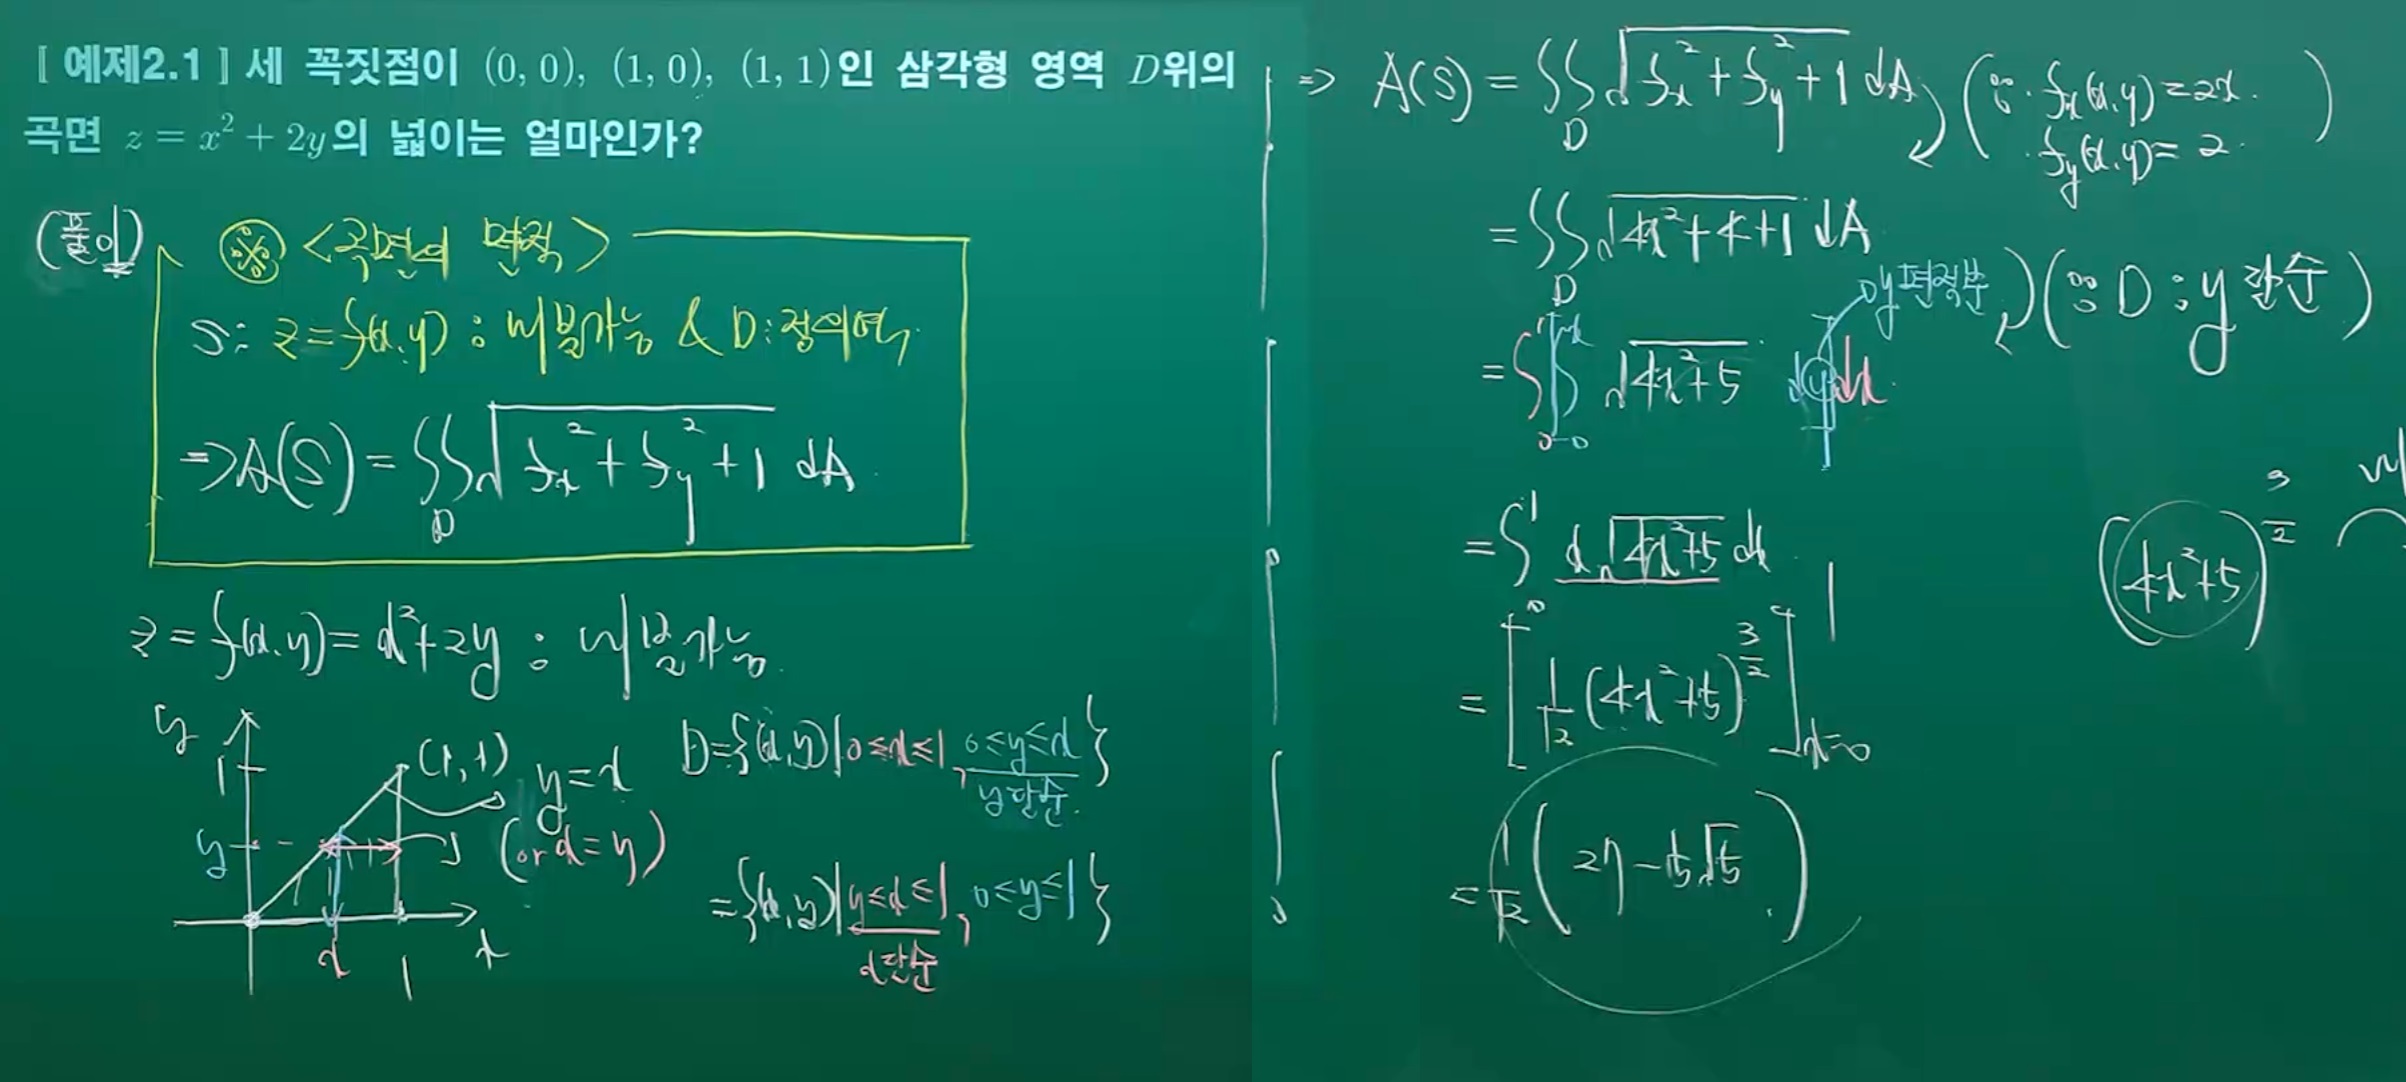 [ 예제2.1 ] 세 꼭짓점이 (0, 0), (1, 0), (1, 1)인 삼각형 영역 D위의
곡면 z = x² + 2y의 넓이는 얼마인가?
(풀이)
※ <곡면의 면적>
S: z = f(x, y) : 미분가능 & D : 정의역
⇒ A(S) = ∬_D √(f_x² + f_y² + 1) dA
z = f(x, y) = x² + 2y : 미분가능
y
1
(1, 1)
y = x
(or x = y)
y
x
1
x
D = {(x, y) | 0 ≤ x ≤ 1, 0 ≤ y ≤ x}
y단순
= {(x, y) | y ≤ x ≤ 1, 0 ≤ y ≤ 1}
x단순
⇒ A(S) = ∬_D √(f_x² + f_y² + 1) dA (∵ · f_x(x, y) = 2x
· f_y(x, y) = 2 )
= ∬_D √(4x² + 4 + 1) dA
y편적분 (∵ D : y단순)
= ∫_0^1 ∫_0^x √(4x² + 5) dy dx
= ∫_0^1 x √(4x² + 5) dx
= [ 1/12 (4x² + 5)^(3/2) ]_{x=0}^1
(4x² + 5)^(3/2)
= 1/12 ( 27 − 5√5 )